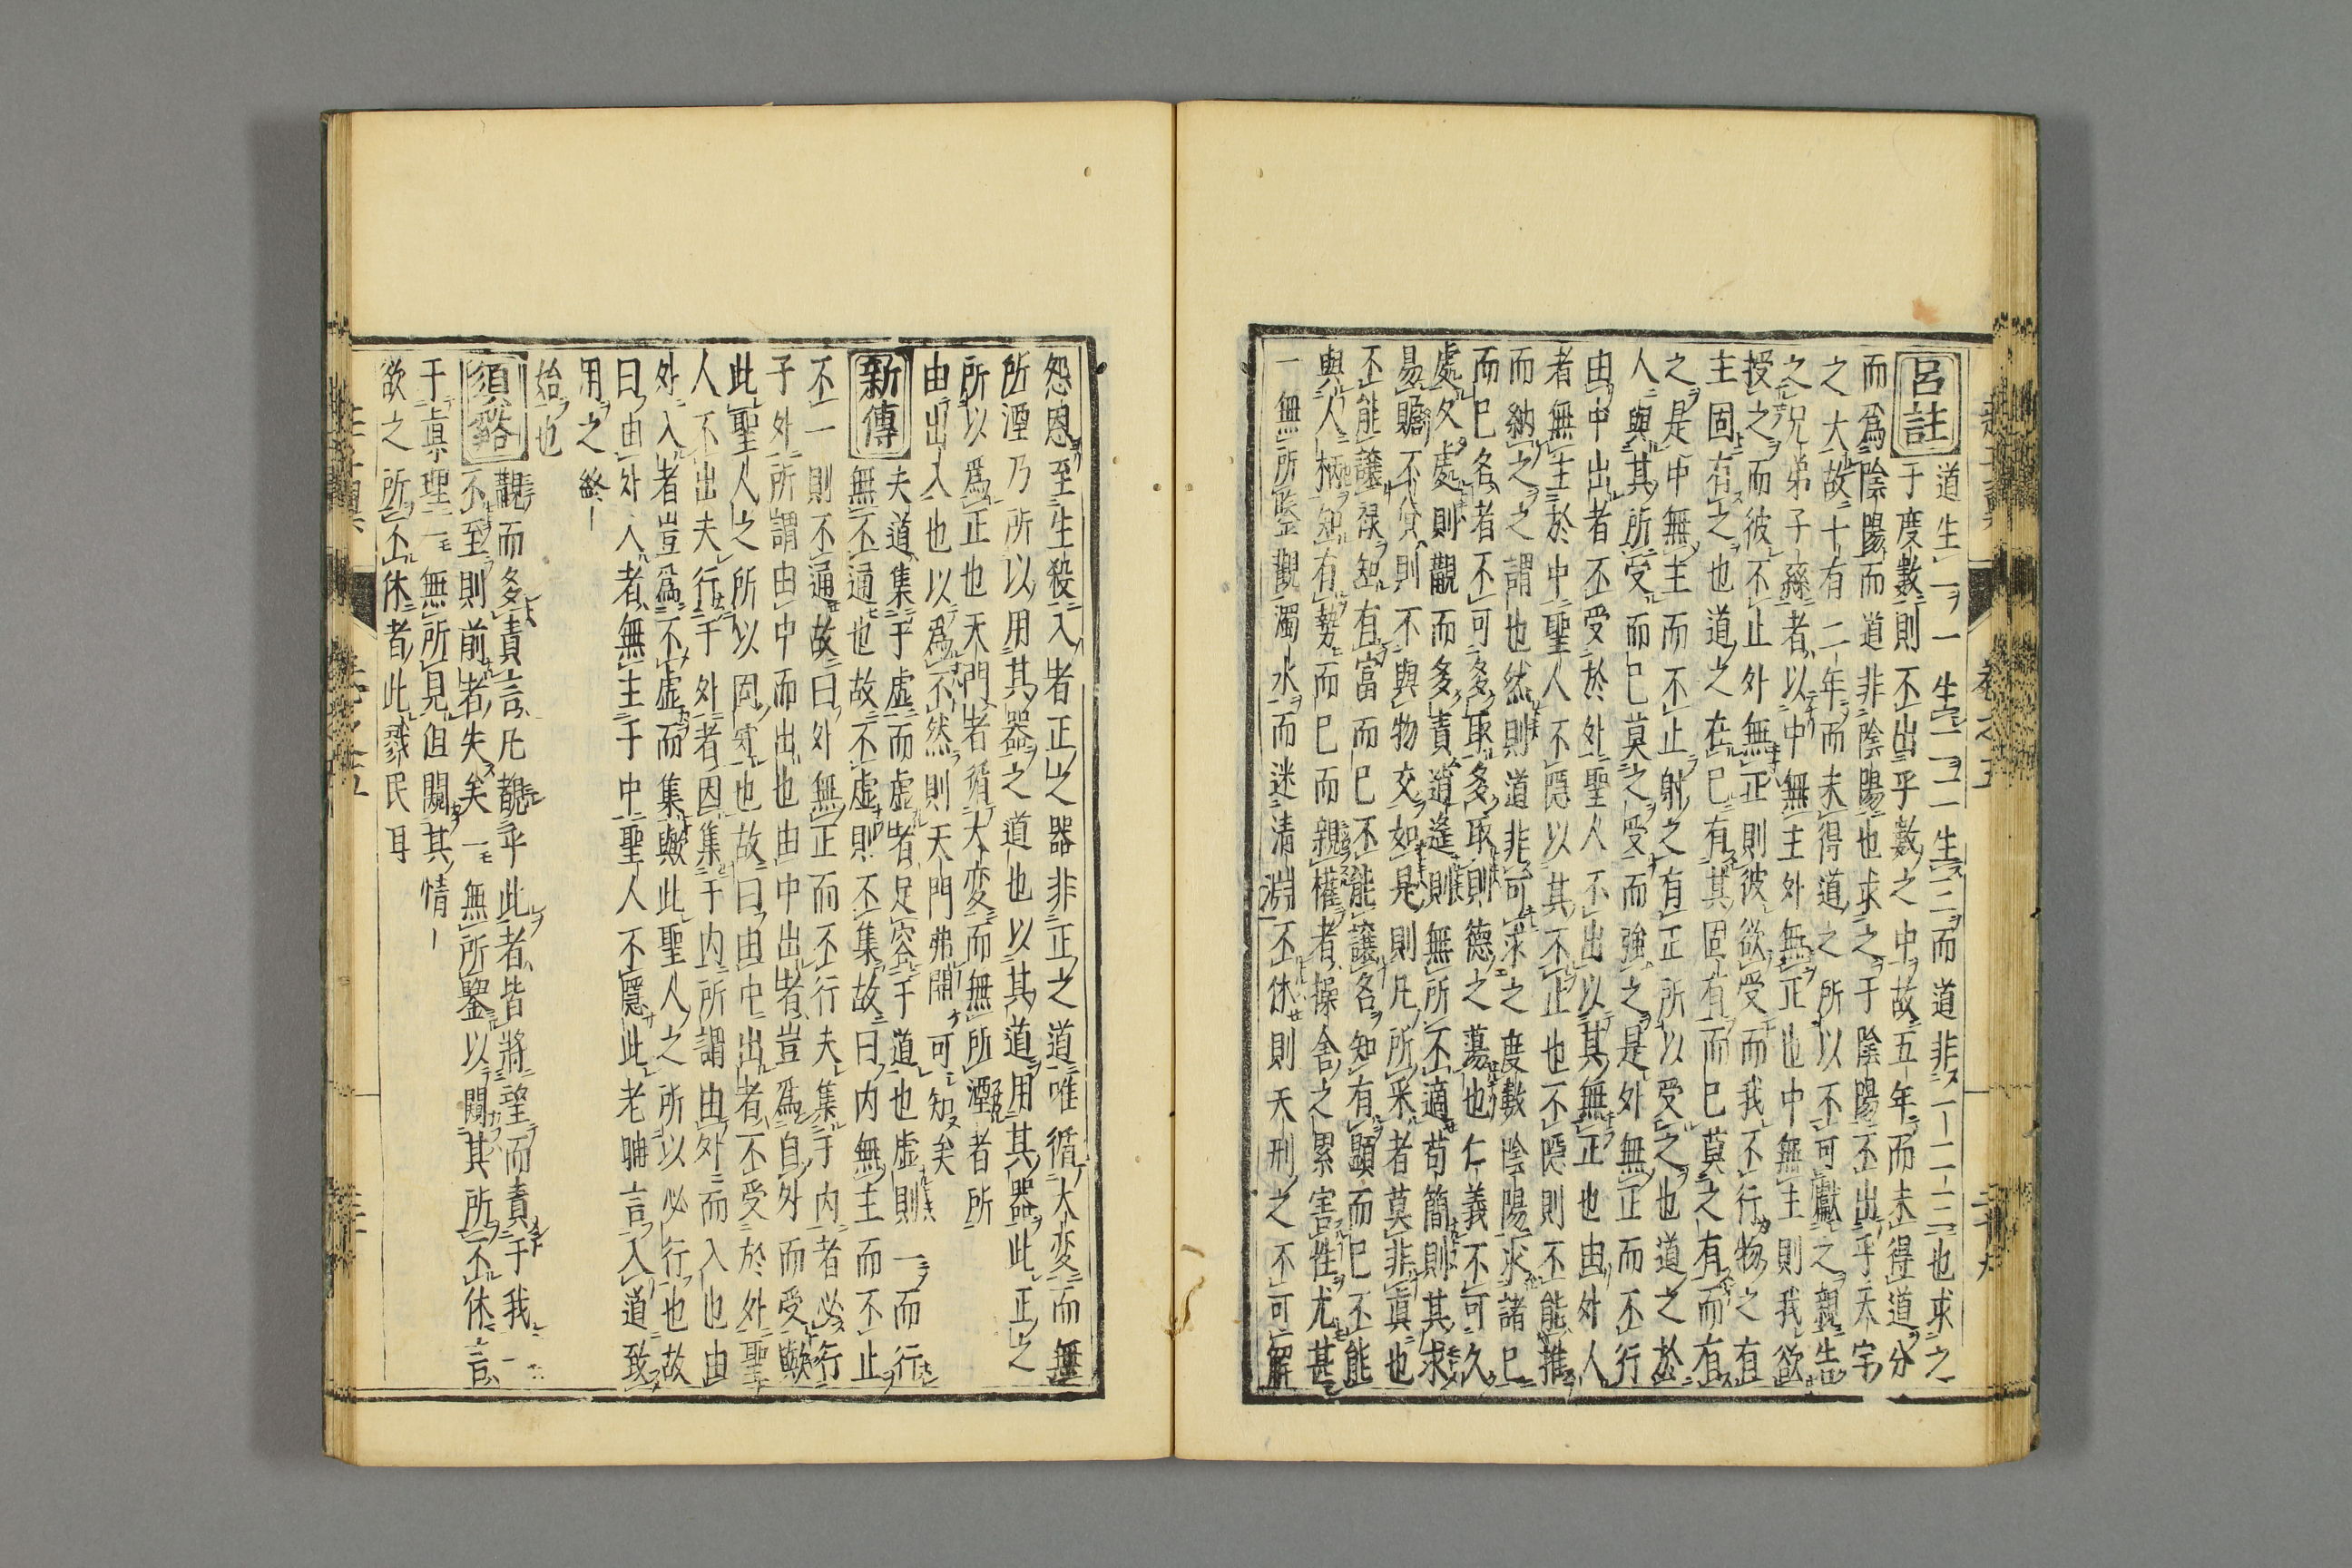 呂註 道生一一生二二生三而道非一二三也求之
于度數則不出乎數之中故五年而未得道分
而爲陰陽而道非陰陽也求之于陰陽不出乎天宇
之大故十有二年而未得道之所以不可獻之親告
之兄弟子孫者以中無主外無正也中無主則我欲
授之而彼不止外無正則彼欲受而我不行物之有
主固有之也道之在已有其固有而已莫之有而有
之是中無主而不止射之有正所以受之也道之於
人與其所受而已莫之受而強之是外無正而不行
由中出者不受於外聖人不出以其無正也由外人
者無主於中聖人不隱以其不止也不隱則不能推
而納之之謂也然則道非可求之度數陰陽求諸已
而已名者不可多取多取則德之蕩也仁義不可久
處久處則觀而多責道逢則無所不適苟簡則其求
易贍不貸則不與物交如是則凡所采者莫非眞也
不能讓祿知有富而已不能讓名知有顯而已不能
與人柄知有勢而已而親權者操舍之累害性尤甚
一無所鑒觀濁水而迷清淵不休則天刑之不可解
怨恩至生殺八者正之器非正之道唯循大変而無
所湮乃所以用其器之道也以其道用其器此正之
所以爲正也天門者循大変而無所湮者所
由出入也以爲不然則天門弗開可知矣
新傳 夫道集于虚而虚者足容于道也虚則一而行
無不通也故不虚則不集故曰内無主而不止
不一則不通故曰外無正而不行夫集于内者必行
子外所謂由中而出也由中出者豈爲自外而受歟
此聖人之所以固守也故曰由中出者不受於外聖
人不出夫行于外者因集于内所謂由外而入也由
外入者豈爲不虚而集歟此聖人之所以必行也故
曰由外入者無主于中聖人不隱此老聃言入道致
用之終
始也
須谿 覯而多責言凡覯乎此者皆將望而責于我一
不至則前者失矣一無所鑒以闚其所不休言
于眞聖一無所見但闚其情
欲之所不休者此戮民耳